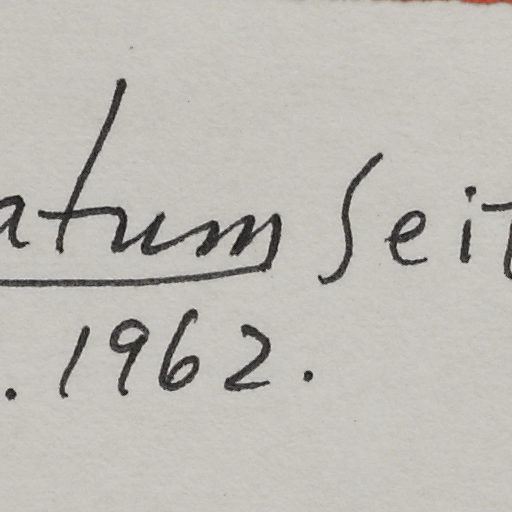 atum Seit
. 1962.